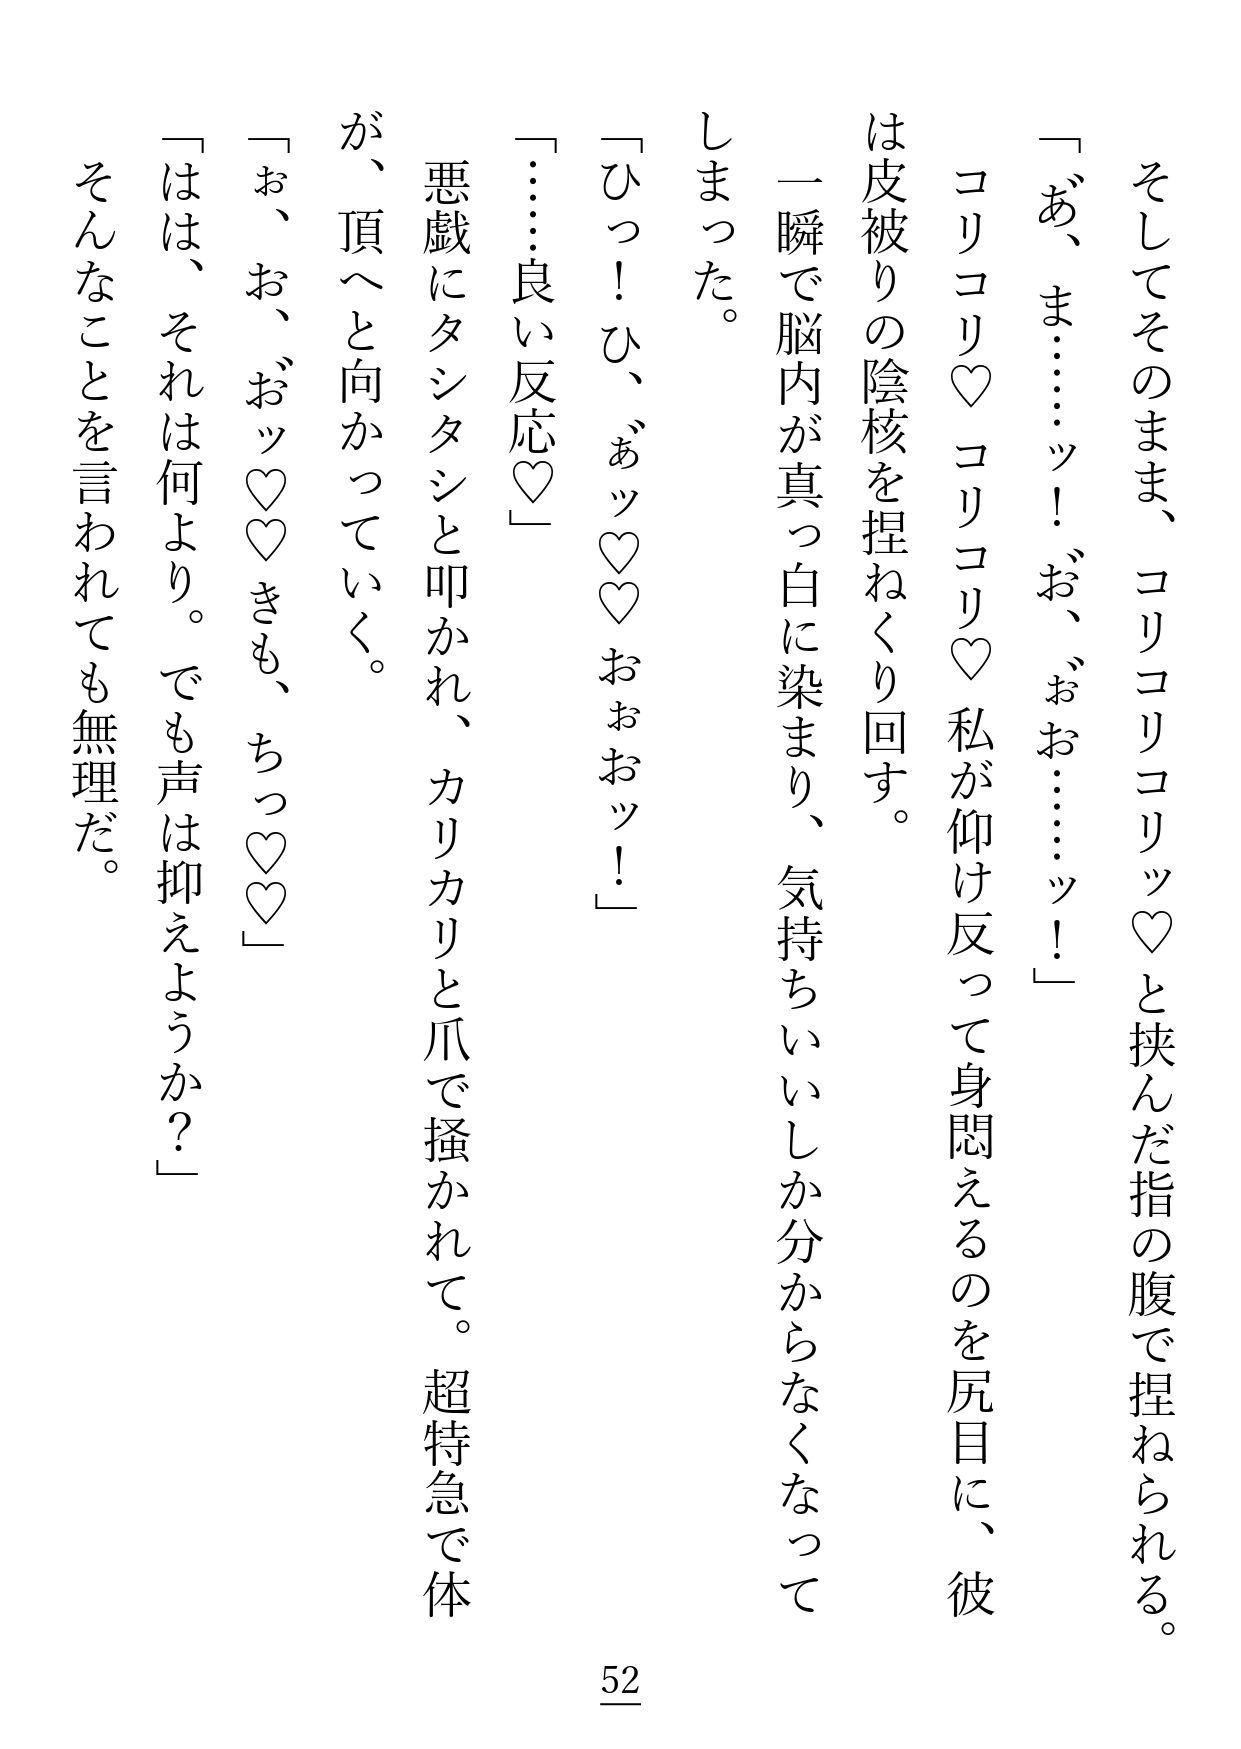 そしてそのまま、コリコリコリッ♡と挟んだ指の腹で捏ねられる。
「あ゛、ま……ッ！お゛、ぉ゛お……ッ！」
　コリコリ♡ コリコリ♡ 私が仰け反って身悶えるのを尻目に、彼
は皮被りの陰核を捏ねくり回す。
　一瞬で脳内が真っ白に染まり、気持ちいいしか分からなくなって
しまった。
「ひっ！ひ、ぁ゛ッ♡♡おぉおッ！」
「……良い反応♡」
　悪戯にタシタシと叩かれ、カリカリと爪で掻かれて。超特急で体
が、頂へと向かっていく。
「ぉ、お、お゛ッ♡♡きも、ちっ♡♡」
「はは、それは何より。でも声は抑えようか？」
　そんなことを言われても無理だ。
52